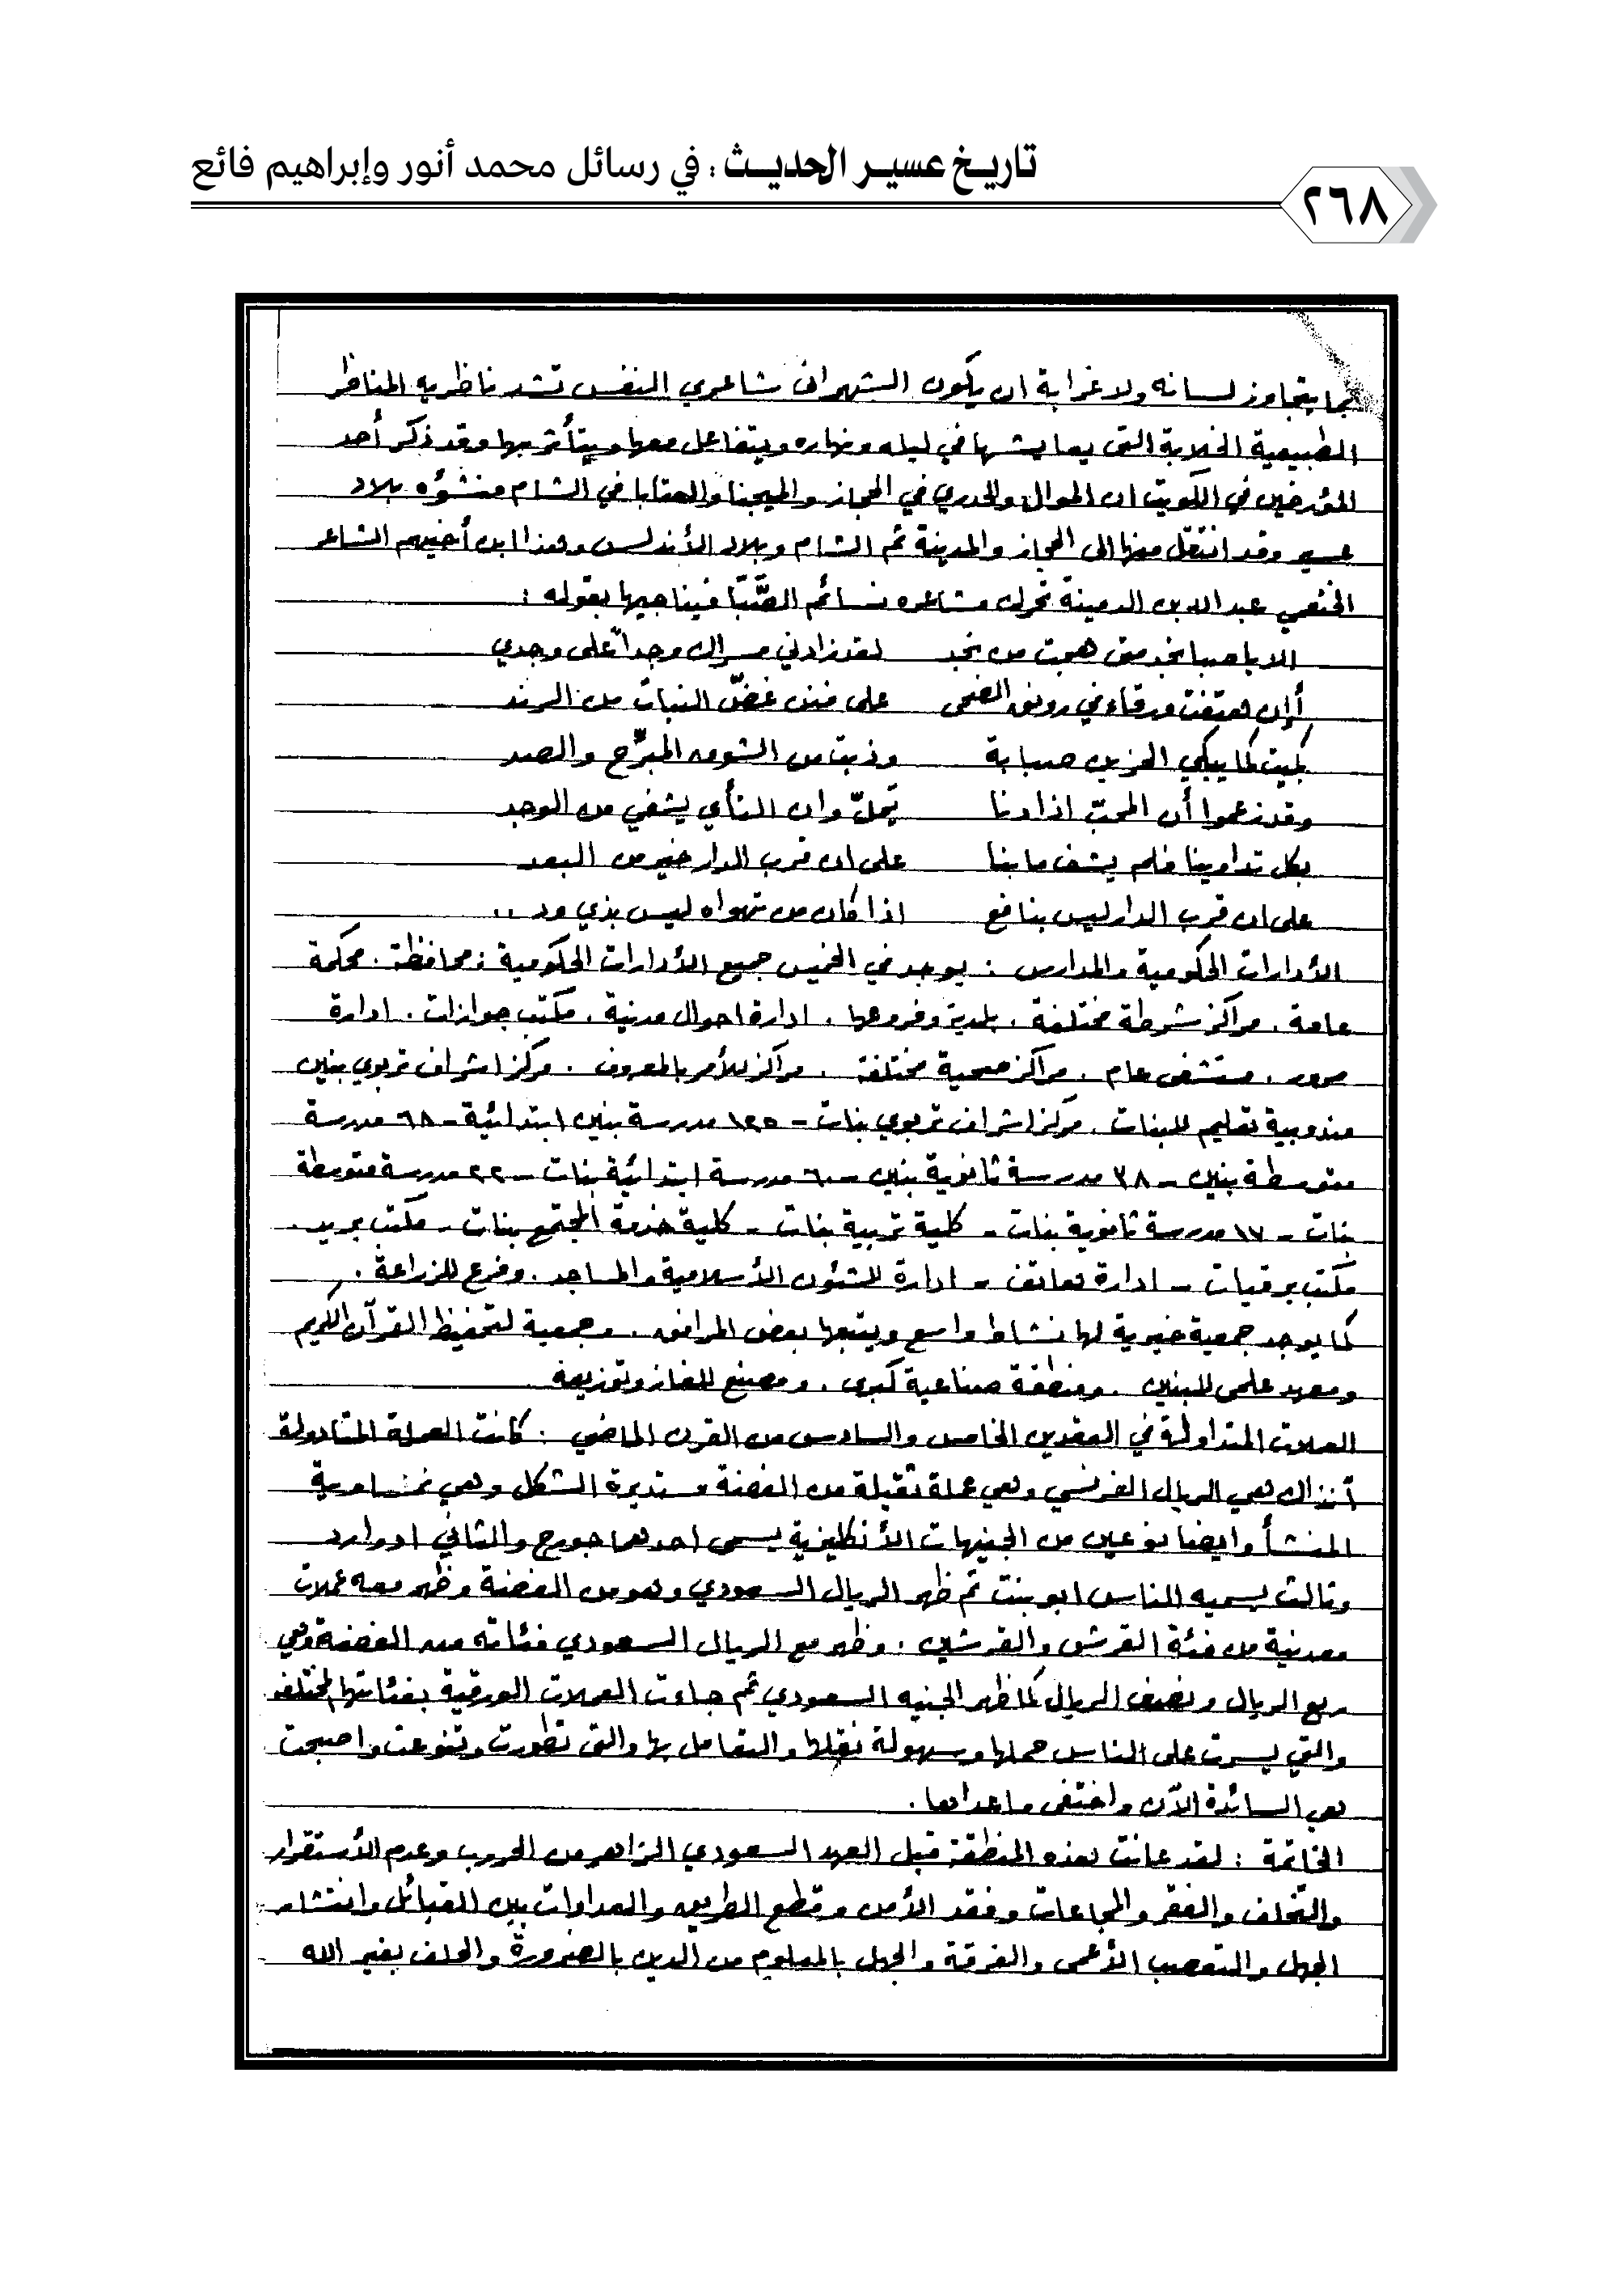 تاريخ عسير الحديث : في رسائل محمد أنور وإبراهيم فائع
٢٦٨
بما يتجاوز لسانه ولا غرابة ان يكون الشهراني شاعري النفس تشد ناظريه المناظر
الطبيعية الخلابة التي يعايشها في ليله ونهاره ويتفاعل معها ويتأثر بها وقد ذكر أحد
المؤرخين في الكويت ان الموال والحدري في الحجاز والميجنا والعتابا في الشام منشؤه بلاد
عسير وقد انتقل منها الى الحجاز والمدينة ثم الشام وبلاد الأندلس وهذا ابن أخيهم الشاعر
الخثعمي عبد الله بن الدمينة تحرك مشاعره نسائم الصَّبَا فيناجيها بقوله :
الا يا صبا نجد متى هجت من نجد لقد زادني مسراك وجداً على وجدي
أإن هتفت ورقاء في رونق الضحى على فنن غضّ النبات من الرند
بكيت كما يبكي الحزين صبابة وذبت من الشوق المبرّح والصد
وقد زعموا أن المحبّ اذا دنا يَملّ وان النأي يشفي من الوجد
بكل تداوينا فلم يشف ما بنا على ان قرب الدار خير من البعد
على ان قرب الدار ليس بنافع اذا كان من تهواه ليس بذي ود ..
الأدارات الحكومية والمدارس : يوجد في الخميس جميع الأدارات الحكومية : محافظة . محكمة
عامة . مراكز شرطة مختلفة . بلدية وفروعها . ادارة احوال مدنية . مكتب جوازات . ادارة
مرور . مستشفى عام . مراكز صحية مختلفة . مراكز للأمر بالمعروف . مركز اشراف تربوي بنين
مندوبية تعليم للبنات . مركز اشراف تربوي بنات - ١٢٥ مدرسة بنين ابتدائية - ٦٨ مدرسة
متوسطة بنين - ٣٨ مدرسة ثانوية بنين - ٦٠ مدرسة ابتدائية بنات - ٢٢ مدرسة متوسطة
بنات - ١٧ مدرسة ثانوية بنات - كلية تربية بنات - كلية خدمة المجتمع بنات - مكتب بريد .
مكتب برقيات - ادارة هاتف - ادارة للشئون الأسلامية والمساجد . وفرع للزراعة .
كما يوجد جمعية خيرية لها نشاط واسع ويتبعها بعض المرافق . وجمعية لتحفيظ القرآن الكريم
ومعهد علمي للبنين . ومنطقة صناعية كبرى . ومصنع للغاز وتوزيعه
العملات المتداولة في العقدين الخامس والسادس من القرن الماضي : كانت العملة المتداولة
آنذاك هي الريال الفرنسي وهي عملة ثقيلة من الفضة مستديرة الشكل وهي نمساوية
المنشأ وايضا نوعين من الجنيهات الأنكليزية يسمى احدهما جورج والثاني ادوارد
وثالث يسميه الناس ابو بنت ثم ظهر الريال السعودي وهو من الفضة وظهر معه عملات
معدنية من فئة القرش والقرشين . وظهر مع الريال السعودي فئاته من الفضة وهي
ربع الريال ونصف الريال كما ظهر الجنيه السعودي ثم جاءت العملات الورقية بفئاتها المختلفة
والتي يسرت على الناس حملها وسهولة نقلها والتعامل بها والتي تطورت وتنوعت واصبحت
هي السائدة الآن واختفى ما عداها .
الخاتمة : لقد عانت هذه المنطقة قبل العهد السعودي الزاهر من الحروب وعدم الأستقرار
والتخلف والفقر والمجاعات وفقد الأمن وقطع الطريق والعداوات بين القبائل وانتشار
الجهل والتعصب الأعمى والفرقة والجهل بالمعلوم من الدين بالضرورة والحلف بغير الله